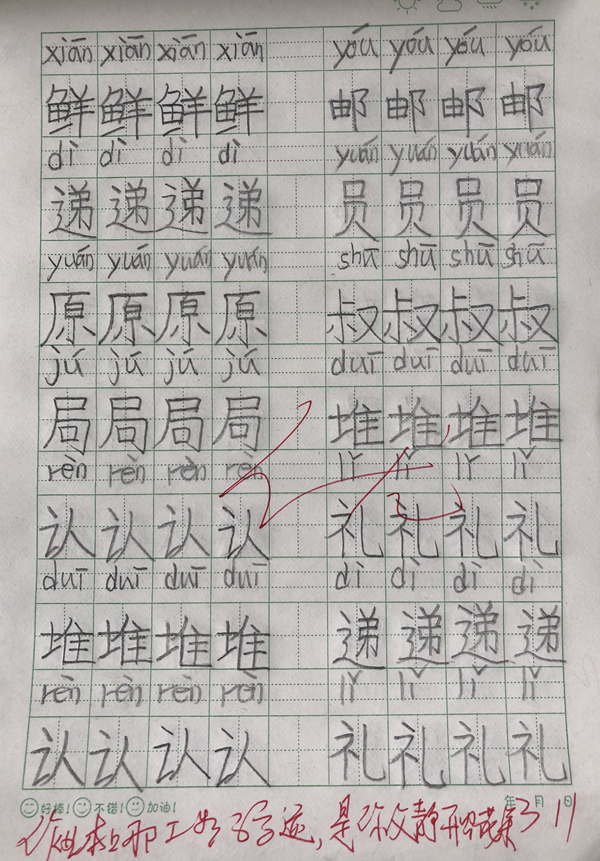 xiān xiān xiān xiān yóu yóu yóu yóu
鲜鲜鲜鲜 邮邮邮邮
dì dì dì dì yuán yuán yuán yuán
递递递递 员员员员
yuán yuán yuán yuán shū shū shū shū
原原原原 叔叔叔叔
jú jú jú jú duī duī duī duī
局局局局 堆堆堆堆
rèn rèn rèn rèn lǐ lǐ lǐ lǐ
认认认认 礼礼礼礼
duī duī duī duī dì dì dì dì
堆堆堆堆 递递递递
rèn rèn rèn rèn lǐ lǐ lǐ lǐ
认认认认 礼礼礼礼
好棒! 不错! 加油! 年 月 日
是你